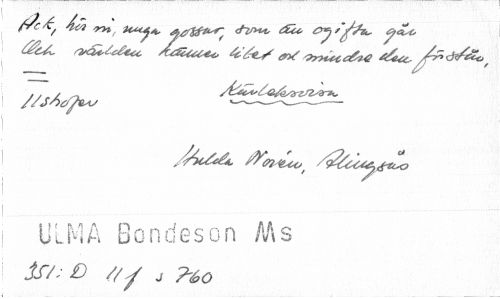 Ack, hör ni, unga gossar, som än ogifta går
Och världen känner litet och mindre den förstår,
11 strofer
Kärleksvisa
Hulda Norén, Alingsås
ULMA Bondeson Ms
351: D 11f s 760